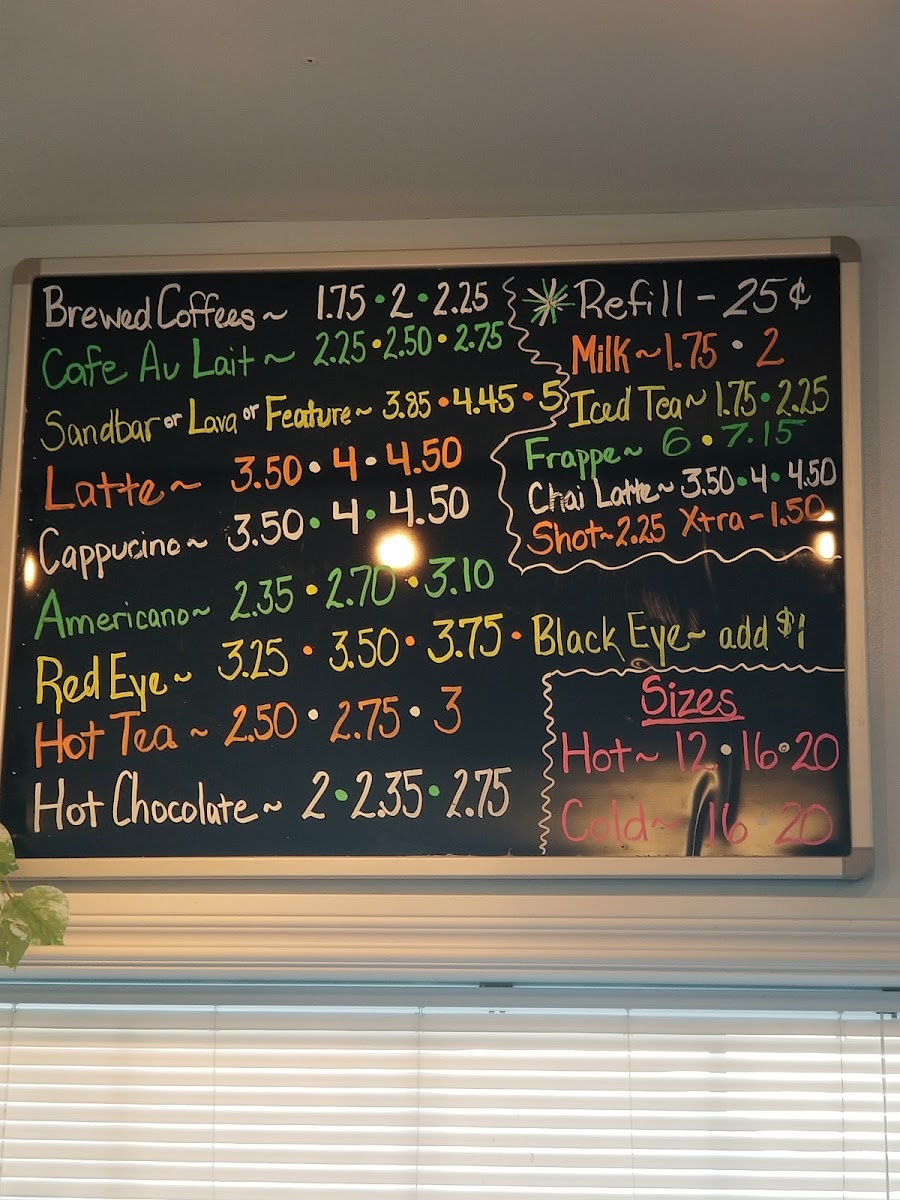 Brewed Coffees ~ 1.75 • 2 • 2.25
Cafe Au Lait ~ 2.25 • 2.50 • 2.75
Sandbar or Lava or Feature ~ 3.85 • 4.45 • 5
Latte ~ 3.50 • 4 • 4.50
Cappucino ~ 3.50 • 4 • 4.50
Americano ~ 2.35 • 2.70 • 3.10
Red Eye ~ 3.25 • 3.50 • 3.75 • Black Eye ~ add $1
Hot Tea ~ 2.50 • 2.75 • 3
Hot Chocolate ~ 2 • 2.35 • 2.75
Refill - 25¢
Milk ~ 1.75 • 2
Iced Tea ~ 1.75 • 2.25
Frappe ~ 6 • 7.15
Chai Latte ~ 3.50 • 4 • 4.50
Shot ~ 2.25 Xtra - 1.50
Sizes
Hot ~ 12 • 16 • 20
Cold ~ 16 • 20